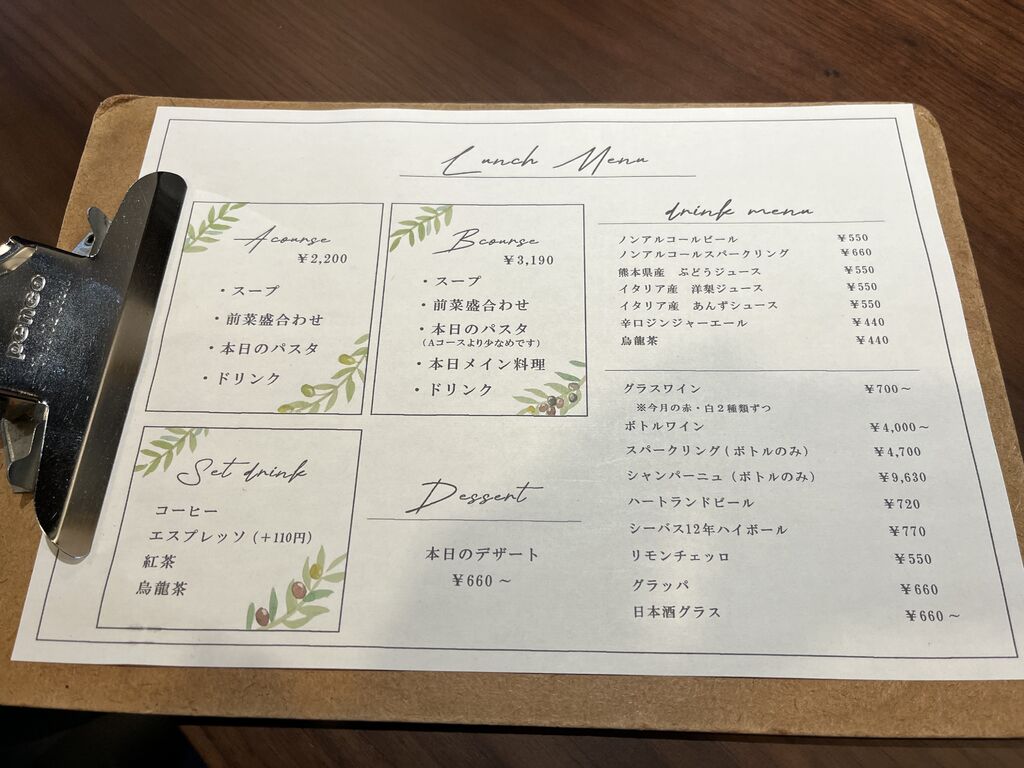 Lunch Menu
A course
¥2,200
・スープ
・前菜盛合わせ
・本日のパスタ
・ドリンク
B course
¥3,190
・スープ
・前菜盛合わせ
・本日のパスタ
(Aコースより少なめです)
・本日メイン料理
・ドリンク
Set drink
コーヒー
エスプレッソ (+110円)
紅茶
烏龍茶
Dessert
本日のデザート
¥660～
drink menu
ノンアルコールビール ¥550
ノンアルコールスパークリング ¥660
熊本県産 ぶどうジュース ¥550
イタリア産 洋梨ジュース ¥550
イタリア産 あんずジュース ¥550
辛口ジンジャーエール ¥440
烏龍茶 ¥440
グラスワイン ¥700～
※今月の赤・白2種類ずつ
ボトルワイン ¥4,000～
スパークリング(ボトルのみ) ¥4,700
シャンパーニュ(ボトルのみ) ¥9,630
ハートランドビール ¥720
シーバス12年ハイボール ¥770
リモンチェッロ ¥550
グラッパ ¥660
日本酒グラス ¥660～
penco